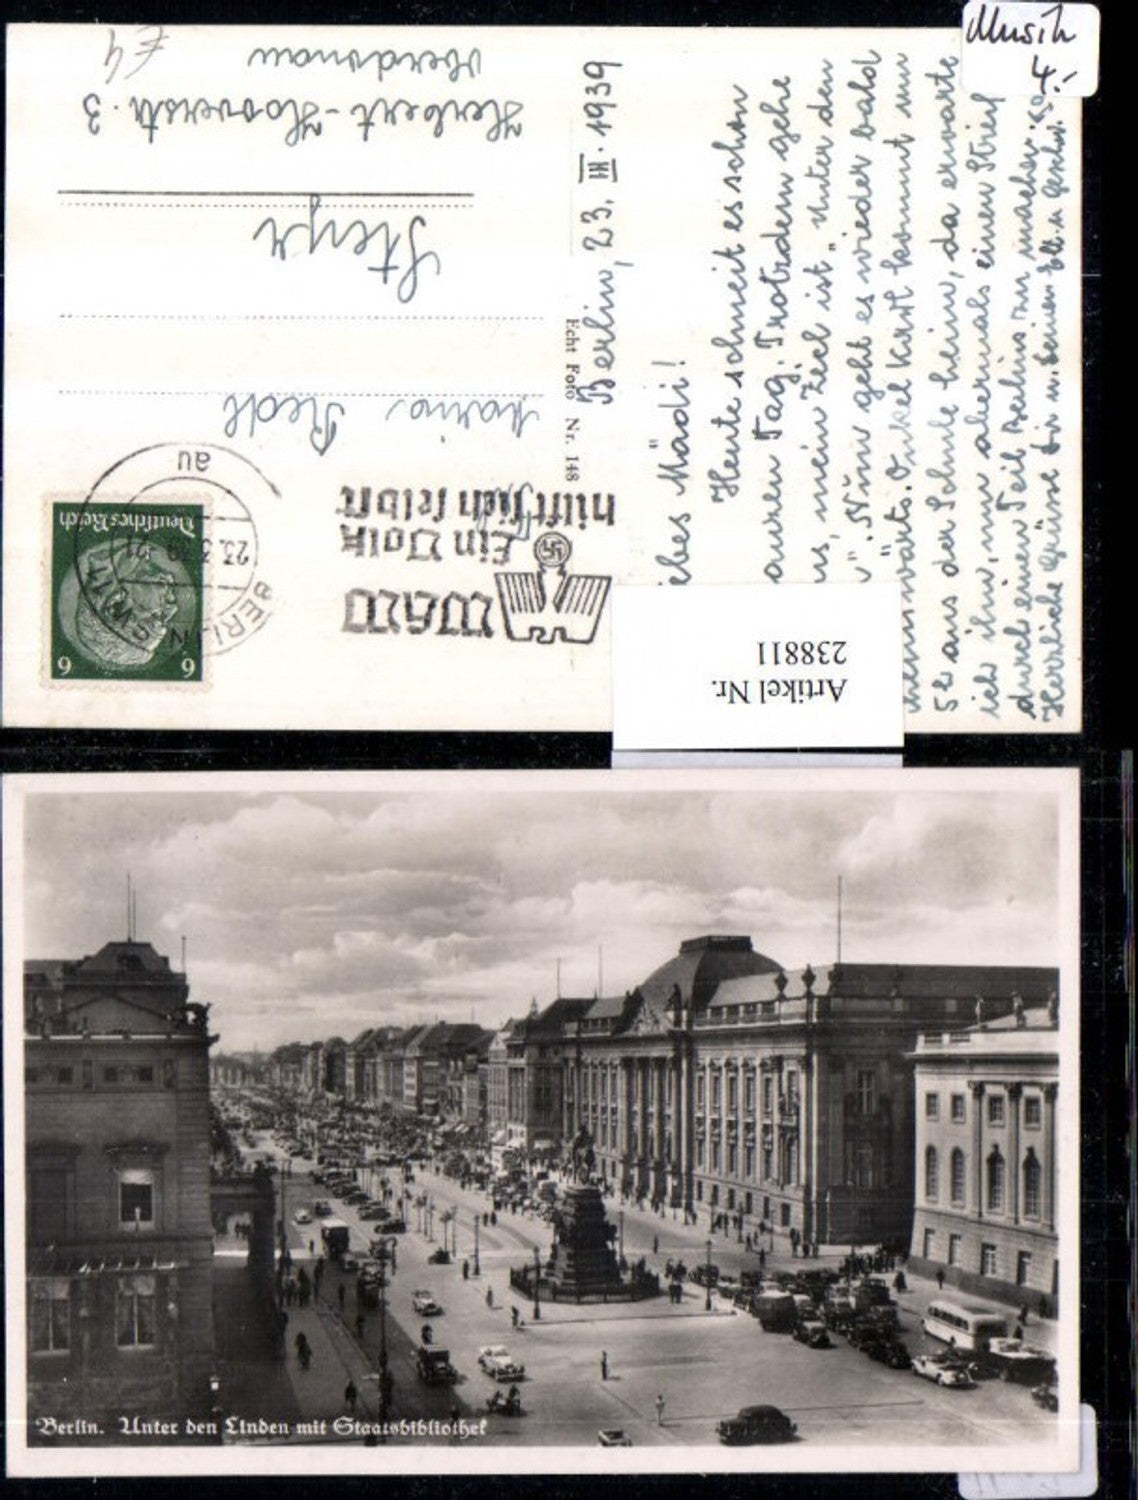 Musik
4.-
€ 4
Berlin, 23. III. 1939
ebes Mädi!
Heute schneit es schon
auren Tag. Trotzdem gehe
us, mein Ziel ist „Unter den
". Nun geht es wieder bald
heimwärts. Onkel Karl kommt um
5h aus der Schule heim, da erwarte
ich ihn, um abermals einen Streif
durch einen Teil Berlins zu machen.
Herzliche Grüsse Dir u. Deinen
Echt Foto Nr. 148
WHW
Ein Volk
hilft sich selbst
BERLIN SW 11
23.3.39.21
au
Deutsches Reich
6 6
Maria Redl
Steyr
Herbert-Hooverstr. 3
Oberdonau
Artikel Nr.
238811
Berlin. Unter den Linden mit Staatsbibliothek